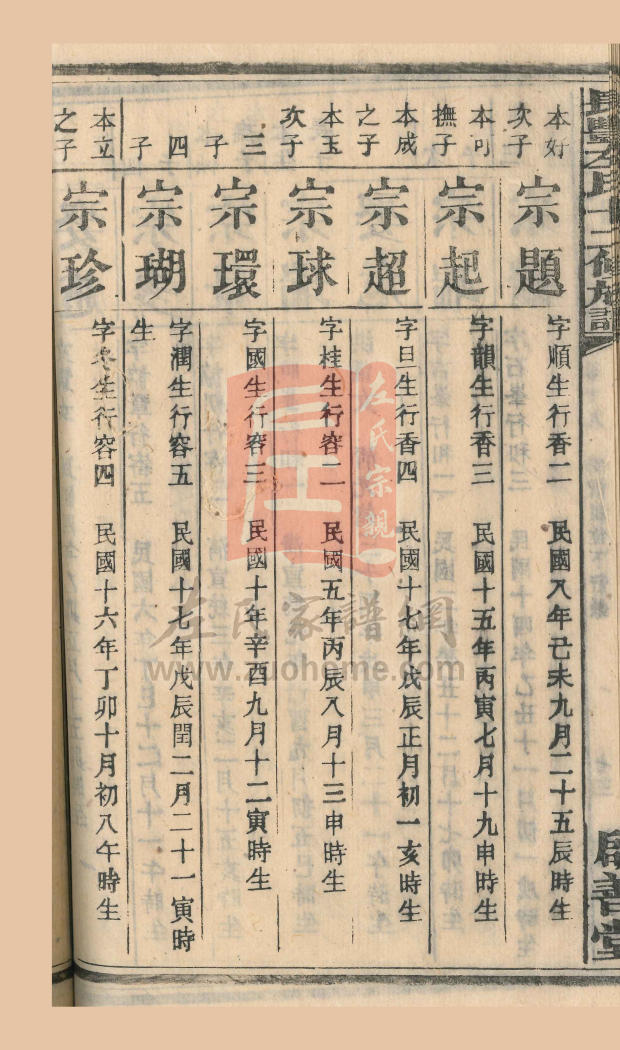 長豐左氏十二修族譜
啟善堂
本好次子
宗題
字順生行香二 民國八年己未九月二十五辰時生
本可撫子
宗起
字韻生行香三 民國十五年丙寅七月十九申時生
本成之子
宗超
字旦生行香四 民國十七年戊辰正月初一亥時生
本玉次子
宗球
字桂生行容二 民國五年丙辰八月十三申時生
三子
宗環
字國生行容三 民國十年辛酉九月十二寅時生
四子
宗瑚
字潤生行容五 民國十七年戊辰閏二月二十一寅時生
本立之子
宗珍
字冬生行容四 民國十六年丁卯十月初八午時生
左氏宗親
左氏家譜網
www.zuohome.com